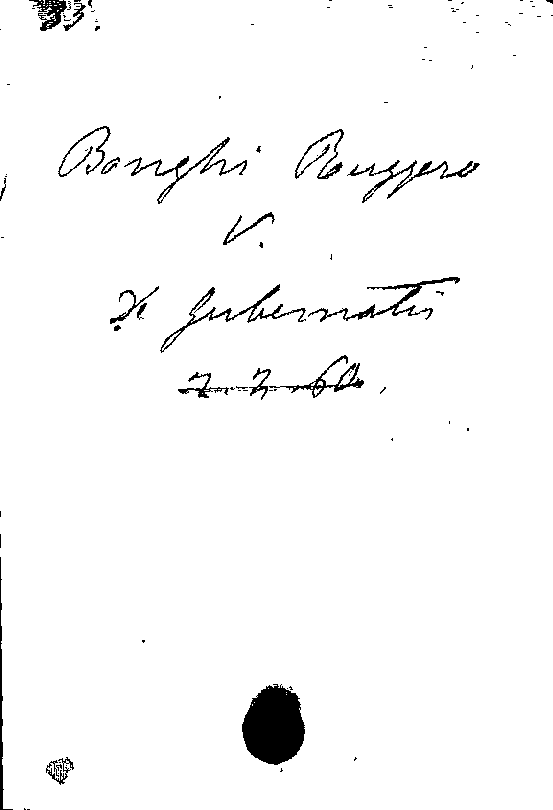 33.
Bonghi Ruggero
V.
De Gubernatis